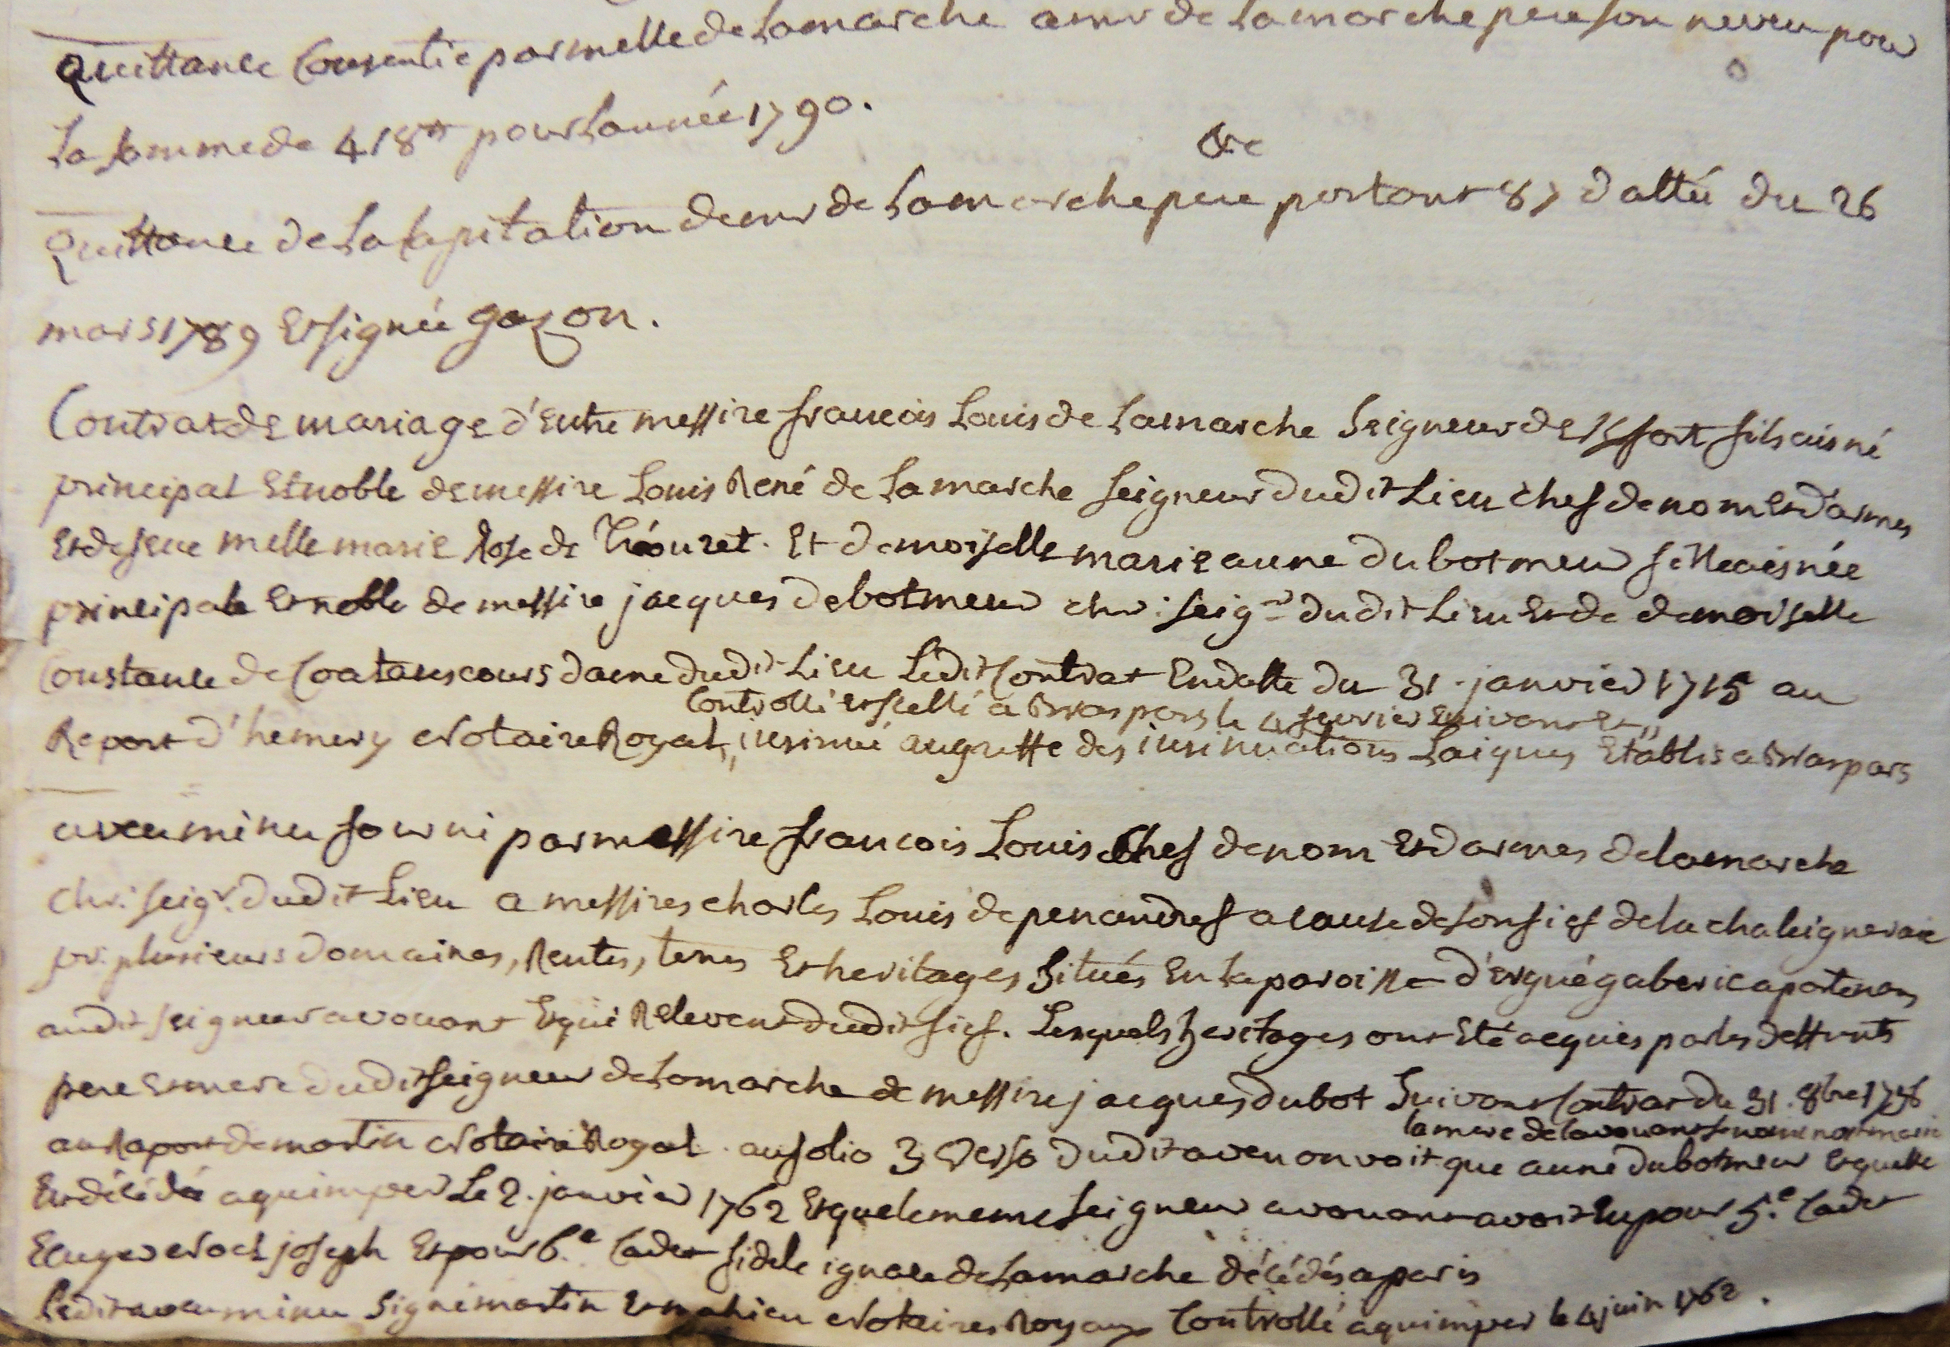 Quittance Consentie par melle de Lamarche a mr de Lamarche pere son neveu pour
La somme de 418tt pour Lannée 1790.
&c
Quittance de La Capitation de mr de Lamarche pere portant 87 dattée du 26
mars 1789 Et signée gozon.
Contrat de mariage d'Entre messire francois Louis de Lamarche Seigneur de Kfort fils aisné
principal Et noble de messire Louis René de Lamarche seigneur dudit Lieu chef de nom et d'armes
Et de feue melle marie Rose de Tréouret. Et demoiselle marie anne du botmeur fille aisnée
principale Et noble de messire jacques de botmeur chr. seigr dudit Lieu Et de demoiselle
Constance de Coatanscours dame dudit Lieu Ledit Contrat En datte du 31 janvier 1715 au
Controllé et scellé a Braspars le 4 fevrier suivant Et "
Raport d'hemery Notaire Royal, " insinué au greffe des insinuations Laiques Etablis a Braspars
aveu minu fourni par messire francois Louis Chef de nom Et d'armes de lamarche
chr. seigr. dudit Lieu a messires charles Louis de penandref a cause de son fief de la chateigneraie
pr. plusieurs domaines, Rentes, terres Et heritages situés En La paroisse d'ergué gaberic apartenans
audit seigneur avouant Et qui Relevent dudit fief. Lesquels heritages ont Eté acquis par les deffunts
pere Et mere dudit seigneur de Lamarche de messire jacques du bot Suivant Contrat du 31. 8bre 1736
la mere de l'avouant se nomme
au Raport de martin Notaire Royal. au folio 3 Verso dudit aveu on voit que anne du botmeur Et quelle
Est décédée a quimper Le 2. janvier 1762 Et que le meme seigneur avouant avoit Eu pour 5.e Cadet
joseph Et pour 6.e Cadet fidele ignace de Lamarche décédés a paris
Ledit aveu minu signé martin Et mahieu Notaires Royaux Controllé a quimper le 4 juin 1762.